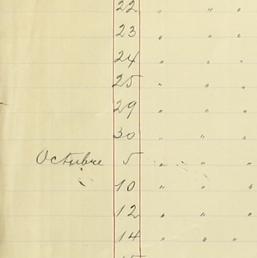 22 " " "
23 " " "
24 " " "
25 " " "
29 " " "
30 " " "
Octubre 5 " " "
10 " " "
12 " " "
14 " " "